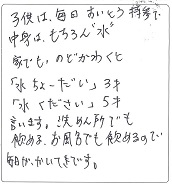 子供は、毎日 すいとう 持参で
中身は、もちろん "水"
家でも、のどかわくと
「水ちょーだい」3才
「水ください」5才
言います。洗めん所でも
飲める、お風呂でも飲めるので
毎日が、かいてきです。